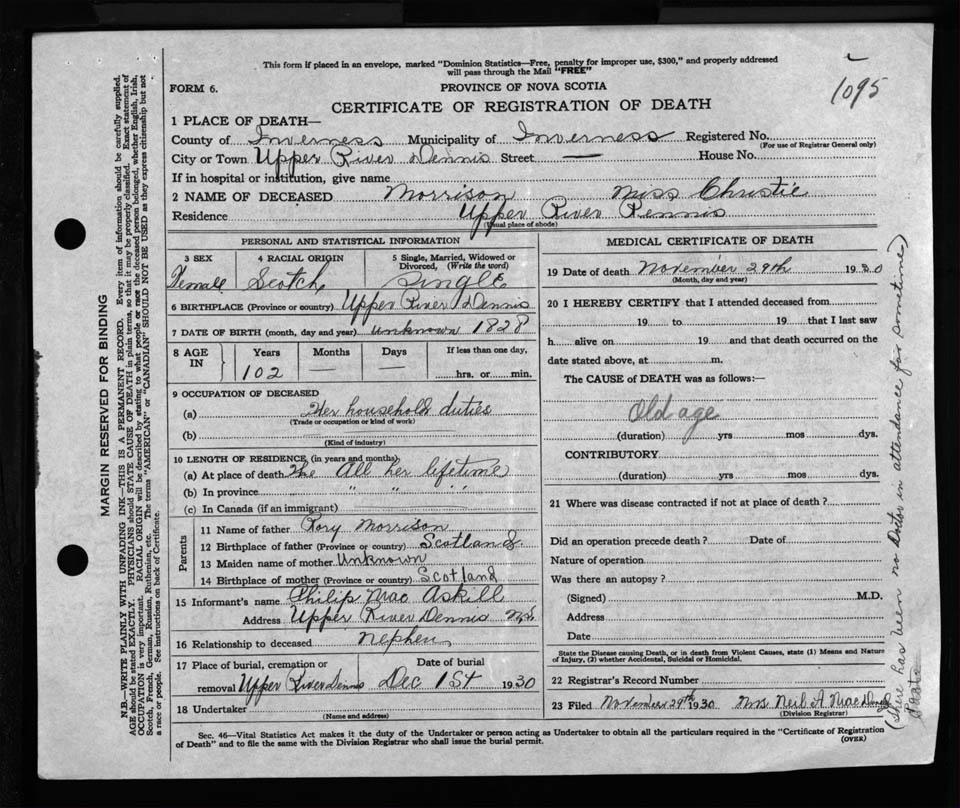 This form if placed in an envelope, marked "Dominion Statistics—Free, penalty for improper use, $300," and properly addressed
will pass through the Mail "FREE"
1095
FORM 6.
PROVINCE OF NOVA SCOTIA
CERTIFICATE OF REGISTRATION OF DEATH
1 PLACE OF DEATH—
County of Inverness Municipality of Inverness Registered No.
(For use of Registrar General only)
City or Town Upper River Dennis Street — House No.
If in hospital or institution, give name
2 NAME OF DECEASED Morrison Miss Christie
Residence Upper River Dennis
(Usual place of abode)
PERSONAL AND STATISTICAL INFORMATION
3 SEX 4 RACIAL ORIGIN 5 Single, Married, Widowed or
Divorced, (Write the word)
Female Scotch Single
6 BIRTHPLACE (Province or country) Upper River Dennis
7 DATE OF BIRTH (month, day and year) unknown 1828
8 AGE IN Years Months Days If less than one day,
102 — — hrs. or min.
9 OCCUPATION OF DECEASED
(a) Her household duties
(Trade or occupation or kind of work)
(b)
(Kind of industry)
10 LENGTH OF RESIDENCE (in years and months)
(a) At place of death The All her lifetime
(b) In province " " "
(c) In Canada (if an immigrant)
Parents
11 Name of father Rory Morrison
12 Birthplace of father (Province or country) Scotland
13 Maiden name of mother Unknown
14 Birthplace of mother (Province or country) Scotland
15 Informant's name Philip Mac Askill
Address Upper River Dennis N.S
16 Relationship to deceased nephew
17 Place of burial, cremation or Date of burial
removal Upper River Dennis Dec 1st 1930
18 Undertaker
(Name and address)
MEDICAL CERTIFICATE OF DEATH
19 Date of death November 29th 1930
(Month, day and year)
20 I HEREBY CERTIFY that I attended deceased from
19 to 19 that I last saw
h alive on 19 and that death occurred on the
date stated above, at m.
The CAUSE of DEATH was as follows:—
Old age
(duration) yrs mos dys.
CONTRIBUTORY
(duration) yrs mos dys.
21 Where was disease contracted if not at place of death?
Did an operation precede death? Date of
Nature of operation
Was there an autopsy?
(Signed) M.D.
Address
Date
State the Disease causing Death, or in death from Violent Causes, state (1) Means and Nature
of Injury, (2) whether Accidental, Suicidal or Homicidal.
22 Registrar's Record Number
23 Filed November 29th 1930 Mrs Neil A MacDonald
(Division Registrar)
Sec. 46—Vital Statistics Act makes it the duty of the Undertaker or person acting as Undertaker to obtain all the particulars required in the "Certificate of Registration
of Death" and to file the same with the Division Registrar who shall issue the burial permit.
(OVER)
MARGIN RESERVED FOR BINDING
N.B.—WRITE PLAINLY WITH UNFADING INK—THIS IS A PERMANENT RECORD. Every item of information should be carefully supplied.
AGE should be stated EXACTLY. PHYSICIANS should STATE CAUSE OF DEATH in plain terms, so that it may be properly classified. Exact statement of
OCCUPATION is very important. RACIAL ORIGIN will be described by stating to what people or race the deceased person belonged, whether English, Irish,
Scotch, French, German, Russian, Ruthenian, etc. The terms "AMERICAN" or "CANADIAN" SHOULD NOT BE USED as they express citizenship but not
a race or people. See instructions on back of Certificate.
(There has been no Doctor in attendance for sometime)